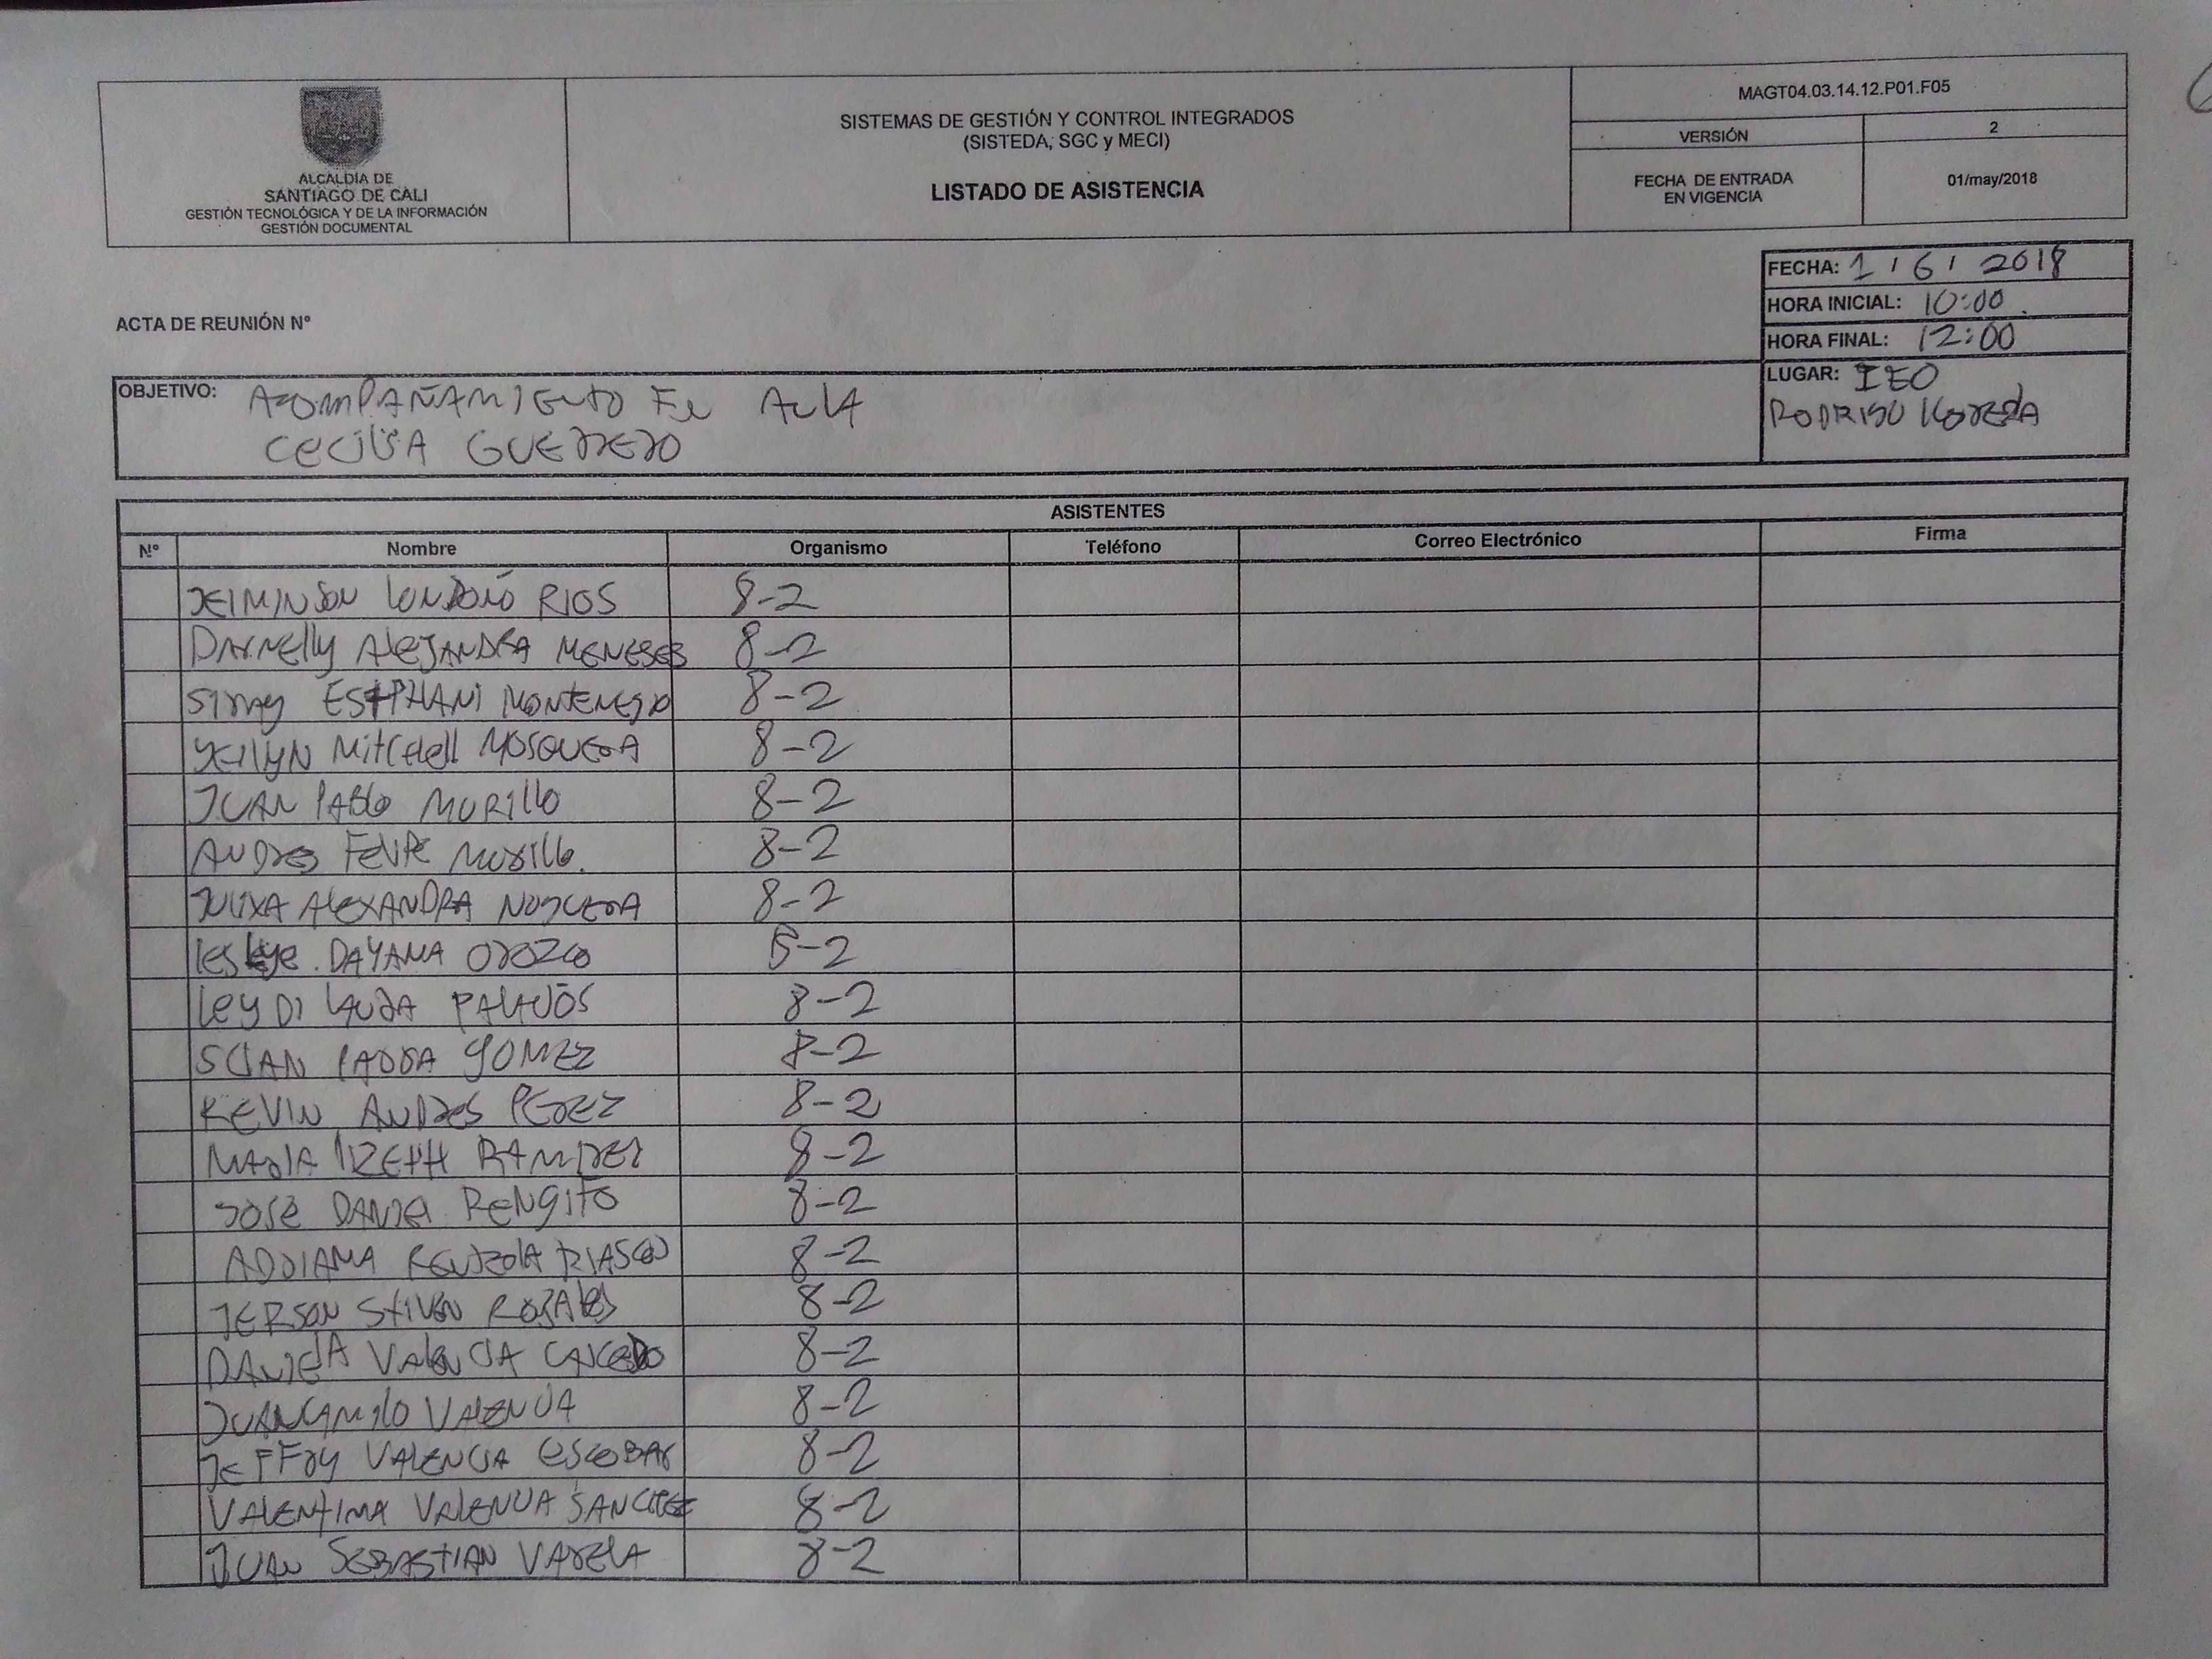 ALCALDÍA DE
SANTIAGO DE CALI
GESTIÓN TECNOLÓGICA Y DE LA INFORMACIÓN
GESTIÓN DOCUMENTAL
SISTEMAS DE GESTIÓN Y CONTROL INTEGRADOS
(SISTEDA, SGC y MECI)
LISTADO DE ASISTENCIA
MAGT04.03.14.12.P01.F05
VERSIÓN 2
FECHA DE ENTRADA
EN VIGENCIA
01/may/2018
ACTA DE REUNIÓN N°
FECHA: 1 / 6 / 2018
HORA INICIAL: 10:00
HORA FINAL: 12:00
LUGAR: IEO
RODRIGO LLOREDA
OBJETIVO: ACOMPAÑAMIENTO EN AULA
CECILIA GUERRERO
ASISTENTES
N° Nombre Organismo Teléfono Correo Electrónico Firma
LONDOÑO RIOS 8-2
ALEJANDRA MENESES 8-2
MONTENEGRO 8-2
MOSQUERA 8-2
JUAN PABLO MURILLO 8-2
ANDRES FELIPE MURILLO. 8-2
ALEXANDRA NOGUERA 8-2
DAYANA OROZCO 8-2
LEYDI LAURA PALACIOS 8-2
PARRA GOMEZ 8-2
KEVIN ANDRES PEREZ 8-2
MARIA LIZETH RAMIREZ 8-2
JOSE DANIEL RENGIFO 8-2
ADRIANA RIASCOS 8-2
JERSON STIVEN ROSALES 8-2
DANIELA VALENCIA CAICEDO 8-2
JUAN CAMILO VALENCIA 8-2
JEFFRY VALENCIA ESCOBAR 8-2
VALENTINA VALENCIA SANCHEZ 8-2
JUAN SEBASTIAN VARELA 8-2